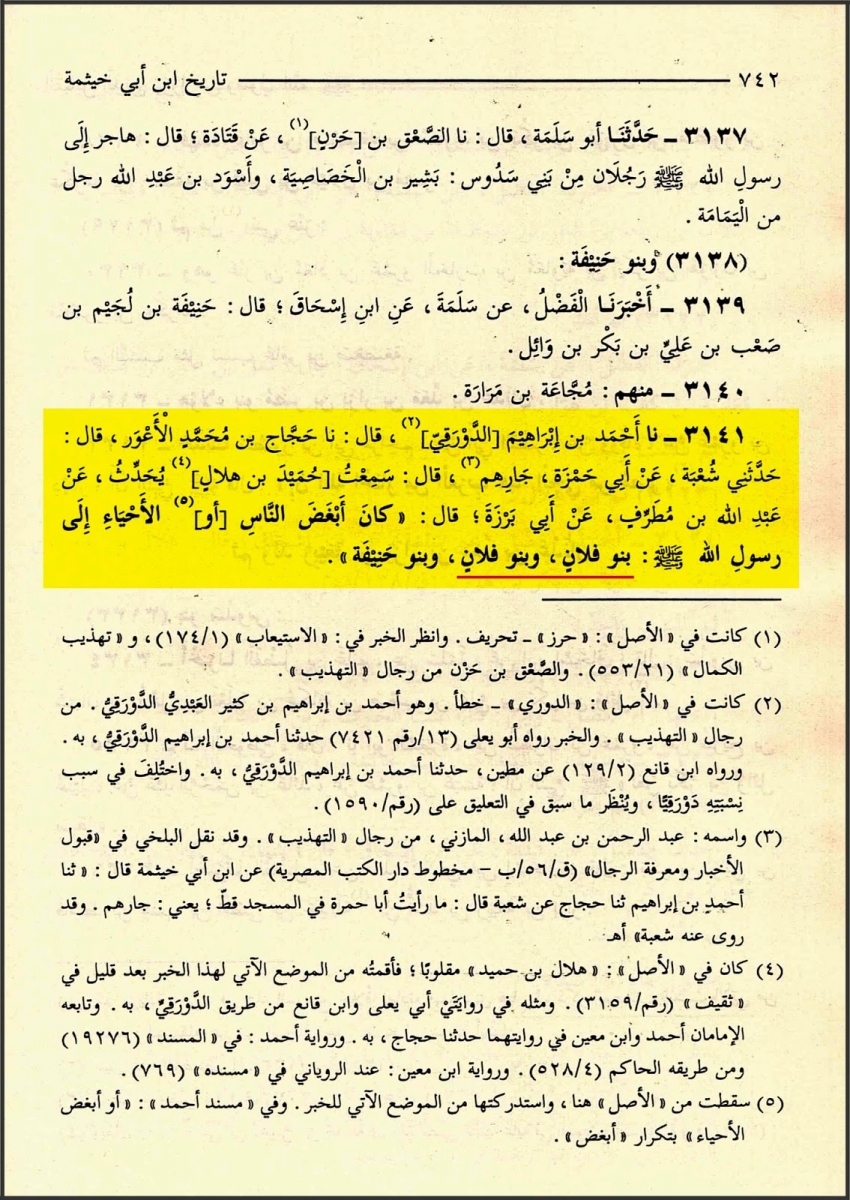 ٧٤٢ تاريخ ابن أبي خيثمة
٣١٣٧ ـ حَدَّثَنَا أبو سَلَمَة ، قال : نا الصَّعْق بن [حَزْنٍ](١) ، عَنْ قَتَادَة ؛ قال : هاجر إِلَى
رسولِ الله ﷺ رَجُلَان مِنْ بَنِي سَدُوس : بَشِير بن الْخَصَاصِيَة ، وأَسْوَد بن عَبْدِ الله رجل
من الْيَمَامَة .
(٣١٣٨) وبنو حَنِيْفَة :
٣١٣٩ ـ أَخْبَرَنَا الْفَضْلُ ، عن سَلَمَةَ ، عَنِ ابنِ إِسْحَاقَ ؛ قال : حَنِيْفَة بن لُجَيْم بن
صَعْب بن عَلِيِّ بن بَكْر بن وَائِل .
٣١٤٠ ـ منهم : مُجَّاعَة بن مَرَارَة .
٣١٤١ ـ نا أَحْمَد بن إِبْرَاهِيْمَ [الدَّوْرَقِيّ](٢) ، قال : نا حَجَّاج بن مُحَمَّدٍ الْأَعْوَر ، قال :
حَدَّثَنِي شُعْبَة ، عَنْ أَبِي حَمْزَة ، جَارِهِم(٣) ، قال : سَمِعْتُ [حُمَيْدَ بن هلالٍ](٤) يُحَدِّثُ ، عَنْ
عَبْدِ الله بن مُطَرِّفٍ ، عَنْ أَبِي بَرْزَةَ ؛ قال : «كانَ أَبْغَضَ النَّاسِ [أو](٥) الأَحْيَاءِ إِلَى
رسولِ الله ﷺ : بنو فلانٍ ، وبنو فلانٍ ، وبنو حَنِيْفَة» .
(١) كانت في «الأصل» : «حرز» ـ تحريف . وانظر الخبر في : «الاستيعاب» (١/١٧٤) ، و«تهذيب
الكمال» (٢١/٥٥٣) . والصَّعْق بن حَزْن من رجال «التهذيب» .
(٢) كانت في «الأصل» : «الدوري» ـ خطأ . وهو أحمد بن إبراهيم بن كثير العَبْدِيُّ الدَّوْرَقِيُّ . من
رجال «التهذيب» . والخبر رواه أبو يعلى (١٣/رقم ٧٤٢١) حدثنا أحمد بن إبراهيم الدَّوْرَقِيُّ ، به .
ورواه ابن قانع (٢/١٢٩) عن مطين ، حدثنا أحمد بن إبراهيم الدَّوْرَقِيُّ ، به . واختُلِفَ في سبب
نِسْبَتِهِ دَوْرَقِيًّا ، ويُنْظَر ما سبق في التعليق على (رقم/١٥٩٠) .
(٣) واسمه : عبد الرحمن بن عبد الله ، المازني ، من رجال «التهذيب» . وقد نقل البلخي في «قبول
الأخبار ومعرفة الرجال» (ق/٥٦/ب – مخطوط دار الكتب المصرية) عن ابن أبي خيثمة قال : «ثنا
أحمد بن إبراهيم ثنا حجاج عن شعبة قال : ما رأيتُ أبا حمرة في المسجد قطّ ؛ يعني : جارهم . وقد
روى عنه شعبة» أهـ
(٤) كان في «الأصل» : «هلال بن حميد» مقلوبًا ؛ فأقمتُه من الموضع الآتي لهذا الخبر بعد قليل في
«ثقيف» (رقم/٣١٥٩) . ومثله في روايَتَيْ أبي يعلى وابن قانع من طريق الدَّوْرَقِيِّ ، به . وتابعه
الإمامان أحمد وابن معين في روايتهما حدثنا حجاج ، به . ورواية أحمد : في «المسند» (١٩٢٧٦)
ومن طريقه الحاكم (٤/٥٢٨) . ورواية ابن معين : عند الروياني في «مسنده» (٧٦٩) .
(٥) سقطت من «الأصل» هنا ، واستدركتها من الموضع الآتي للخبر . وفي «مسند أحمد» : «أو أبغض
الأحياء» بتكرار «أبغض» .